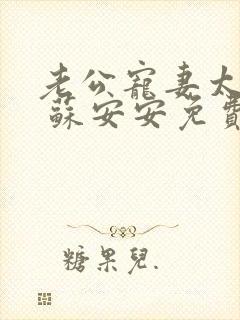 老公寵妻太
蘇安安免費
糖果兒.